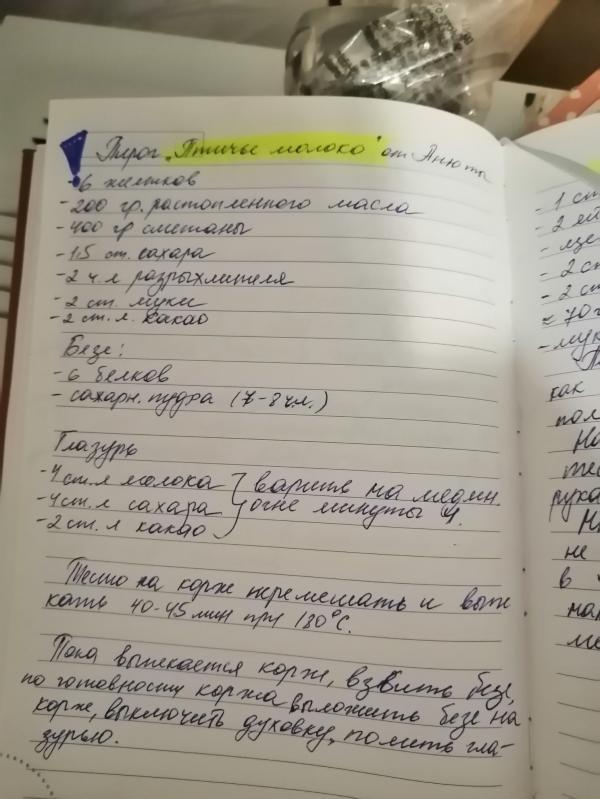 Пирог „Птичье молоко" от Анюты
- 6 желтков
- 200 гр. растопленного масла
- 400 гр сметаны
- 1,5 ст. сахара
- 2 ч. л разрыхлителя
- 2 ст. муки
- 2 ст. л. какао
Безе:
- 6 белков
- сахарн. пудра (7-8 ч.л.)
Глазурь
- 4 ст. л молока } варить на медлен.
- 4 ст. л сахара огне минуты 4.
- 2 ст. л какао
Тесто на корж перемешать и выпе
кать 40-45 мин при 180°С.
Пока выпекается корж, взбить безе,
по готовности коржа выложить безе на
корж, выключить духовку, полить гла-
зурью.
- 1 ст
- 2
- 2 ст
- 2 ст
≈ 70
- мук
как
пол
На
тес
рука
не
в
нал
ме